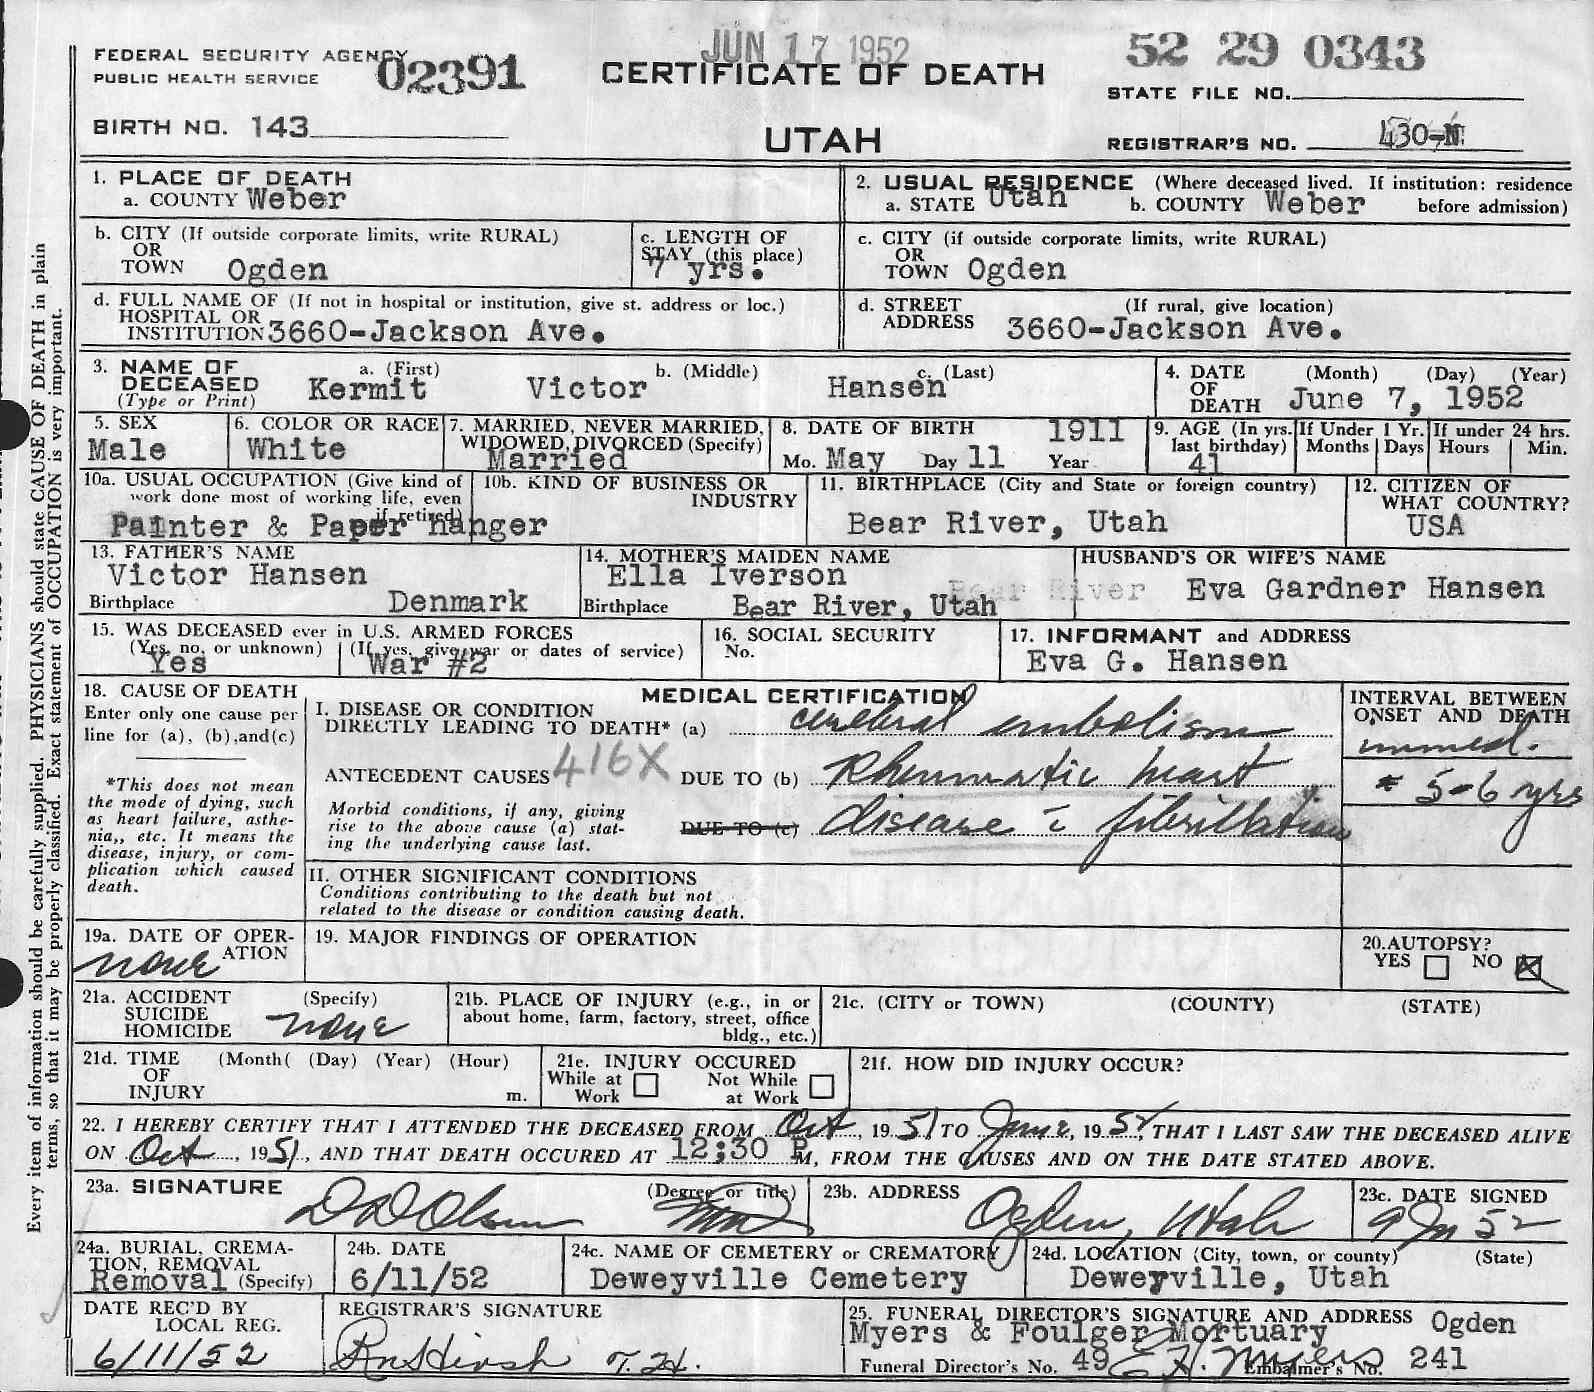 JUN 17 1952
52 29 0343
FEDERAL SECURITY AGENCY
PUBLIC HEALTH SERVICE
02391
CERTIFICATE OF DEATH
STATE FILE NO.
BIRTH NO. 143
UTAH
REGISTRAR'S NO. 430-N
1. PLACE OF DEATH
a. COUNTY Weber
2. USUAL RESIDENCE (Where deceased lived. If institution: residence
a. STATE Utah b. COUNTY Weber before admission)
b. CITY (If outside corporate limits, write RURAL)
OR
TOWN Ogden
c. LENGTH OF
STAY (this place)
7 yrs.
c. CITY (if outside corporate limits, write RURAL)
OR
TOWN Ogden
d. FULL NAME OF (If not in hospital or institution, give st. address or loc.)
HOSPITAL OR
INSTITUTION 3660-Jackson Ave.
d. STREET (If rural, give location)
ADDRESS 3660-Jackson Ave.
3. NAME OF a. (First) b. (Middle) c. (Last)
DECEASED Kermit Victor Hansen
(Type or Print)
4. DATE (Month) (Day) (Year)
OF
DEATH June 7, 1952
5. SEX
Male
6. COLOR OR RACE
White
7. MARRIED, NEVER MARRIED,
WIDOWED, DIVORCED (Specify)
Married
8. DATE OF BIRTH 1911
Mo. May Day 11 Year
9. AGE (In yrs.
last birthday)
41
If Under 1 Yr.
Months Days
If under 24 hrs.
Hours Min.
10a. USUAL OCCUPATION (Give kind of
work done most of working life, even
if retired)
Painter & Paper hanger
10b. KIND OF BUSINESS OR
INDUSTRY
11. BIRTHPLACE (City and State or foreign country)
Bear River, Utah
12. CITIZEN OF
WHAT COUNTRY?
USA
13. FATHER'S NAME
Victor Hansen
Birthplace Denmark
14. MOTHER'S MAIDEN NAME
Ella Iverson
Bear River
Birthplace Bear River, Utah
HUSBAND'S OR WIFE'S NAME
Eva Gardner Hansen
15. WAS DECEASED ever in U.S. ARMED FORCES
(Yes, no, or unknown) (If yes, give war or dates of service)
Yes War #2
16. SOCIAL SECURITY
No.
17. INFORMANT and ADDRESS
Eva G. Hansen
18. CAUSE OF DEATH
Enter only one cause per
line for (a), (b),and(c)
*This does not mean
the mode of dying, such
as heart failure, asthe-
nia,, etc. It means the
disease, injury, or com-
plication which caused
death.
MEDICAL CERTIFICATION
I. DISEASE OR CONDITION
DIRECTLY LEADING TO DEATH* (a) cerebral embolism
ANTECEDENT CAUSES 416X DUE TO (b) Rheumatic heart
Morbid conditions, if any, giving
rise to the above cause (a) stat-
ing the underlying cause last.
DUE TO (c) disease c̄ fibrillation
INTERVAL BETWEEN
ONSET AND DEATH
immed.
5-6 yrs
II. OTHER SIGNIFICANT CONDITIONS
Conditions contributing to the death but not
related to the disease or condition causing death.
19a. DATE OF OPER-
ATION
none
19. MAJOR FINDINGS OF OPERATION
20.AUTOPSY?
YES NO
21a. ACCIDENT (Specify)
SUICIDE
HOMICIDE none
21b. PLACE OF INJURY (e.g., in or
about home, farm, factory, street, office
bldg., etc.)
21c. (CITY or TOWN) (COUNTY) (STATE)
21d. TIME (Month( (Day) (Year) (Hour)
OF
INJURY m.
21e. INJURY OCCURED
While at Not While
Work at Work
21f. HOW DID INJURY OCCUR?
22. I HEREBY CERTIFY THAT I ATTENDED THE DECEASED FROM Oct, 1951 TO June, 1952, THAT I LAST SAW THE DECEASED ALIVE
ON Oct, 1951, AND THAT DEATH OCCURED AT 12:30 P M, FROM THE CAUSES AND ON THE DATE STATED ABOVE.
23a. SIGNATURE (Degree or title)
D D Olsen MD
23b. ADDRESS
Ogden, Utah
23c. DATE SIGNED
9 Jn 52
24a. BURIAL, CREMA-
TION, REMOVAL
Removal (Specify)
24b. DATE
6/11/52
24c. NAME OF CEMETERY or CREMATORY
Deweyville Cemetery
24d. LOCATION (City, town, or county) (State)
Deweyville, Utah
DATE REC'D BY
LOCAL REG.
6/11/52
REGISTRAR'S SIGNATURE
25. FUNERAL DIRECTOR'S SIGNATURE AND ADDRESS Ogden
Myers & Foulger Mortuary
Funeral Director's No. 49 E H. Myers Embalmer's No. 241
Every item of information should be carefully supplied. PHYSICIANS should state CAUSE OF DEATH in plain
terms, so that it may be properly classified. Exact statement of OCCUPATION is very important.